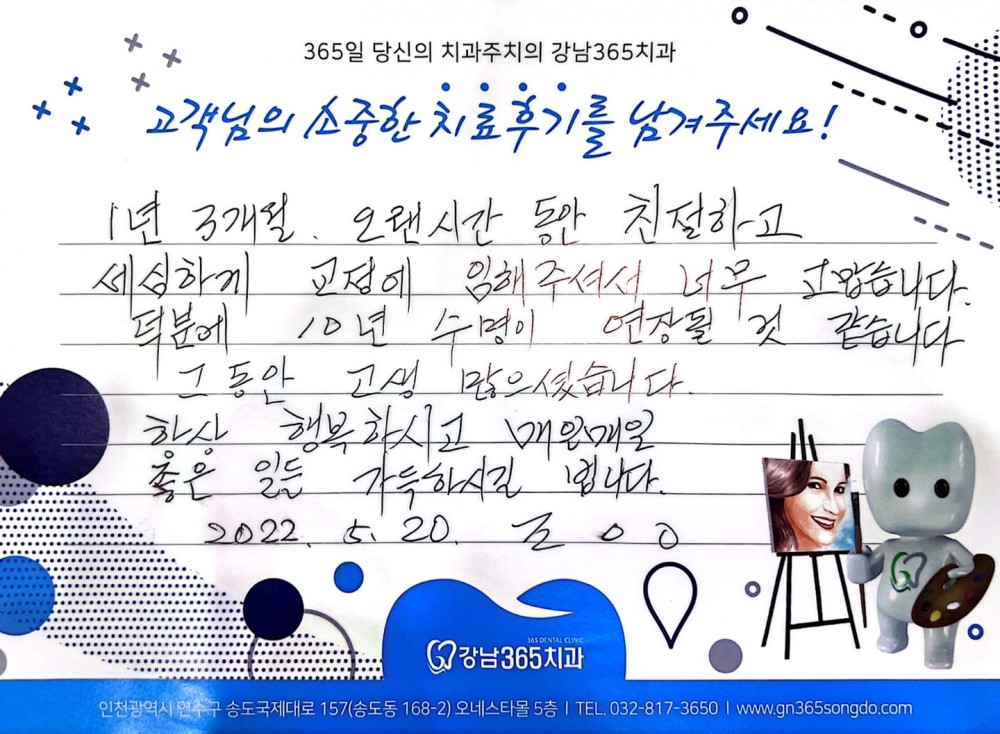 365일 당신의 치과주치의 강남365치과
고객님의 소중한 치료후기를 남겨주세요!
1년 3개월. 오랜시간 동안 친절하고
세심하게 교정에 임해주셔서 너무 고맙습니다.
덕분에 10년 수명이 연장될 것 같습니다
그동안 고생 많으셨습니다.
항상 행복하시고 매일매일
좋은 일들 가득하시길 빕니다.
2022. 5. 20. 조 ㅇㅇ
365 DENTAL CLINIC
강남365치과
인천광역시 연수구 송도국제대로 157(송도동 168-2) 오네스타몰 5층 | TEL. 032-817-3650 | www.gn365songdo.com